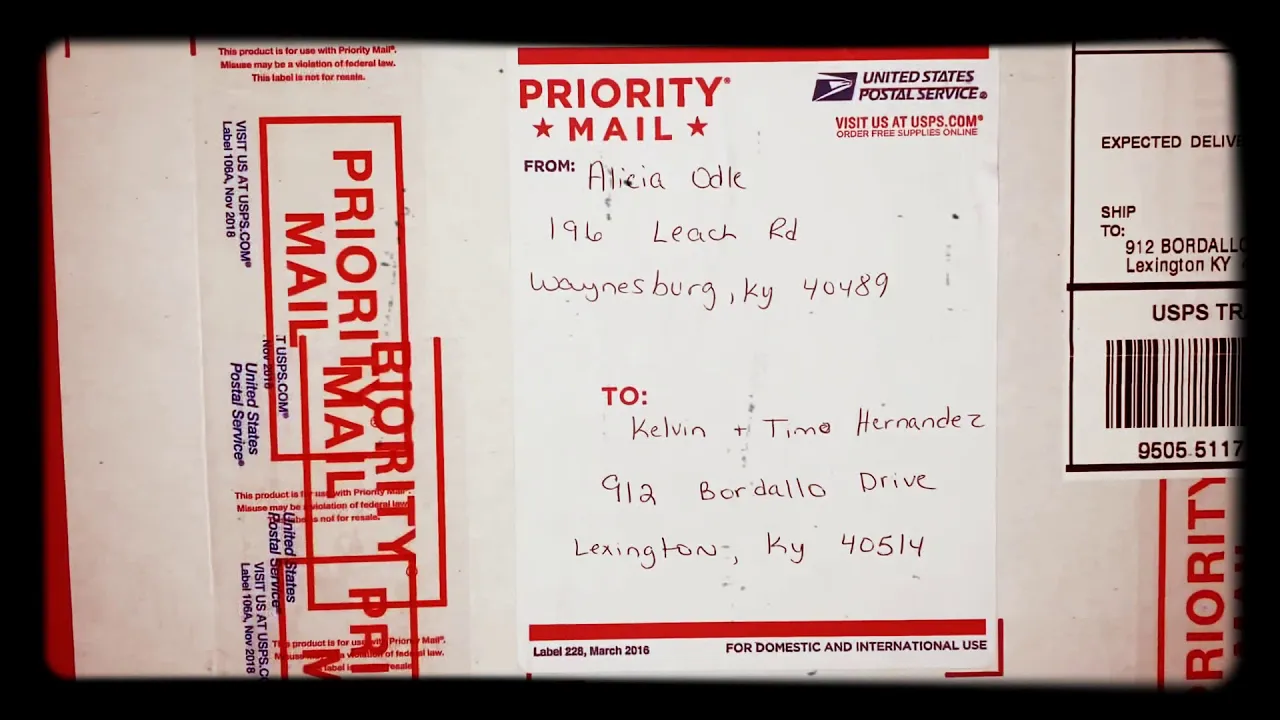 This product is for use with Priority Mail®.
Misuse may be a violation of federal law.
This label is not for resale.
VISIT US AT USPS.COM®
Label 106A, Nov 2018
PRIORITY
MAIL
T USPS.COM®
Nov 2018
United States
Postal Service®
PRIORITY
MAIL
This product is for use with Priority Mail®.
Misuse may be a violation of federal law.
is not for resale.
United States
Postal Service®
VISIT US AT USPS.COM®
Label 106A, Nov 2018
PRI
M
This product is for use with Priority Mail®.
Misuse may be a violation of federal law.
label is not for resale.
PRIORITY®
MAIL
UNITED STATES
POSTAL SERVICE®
VISIT US AT USPS.COM®
ORDER FREE SUPPLIES ONLINE
FROM: Alicia Odle
196 Leach Rd
Waynesburg, Ky 40489
TO:
Kelvin + Timo Hernandez
912 Bordallo Drive
Lexington, Ky 40514
Label 228, March 2016
FOR DOMESTIC AND INTERNATIONAL USE
EXPECTED DELIVE
SHIP
TO:
912 BORDALLO
Lexington KY
USPS TR
9505 5117
PRIORITY